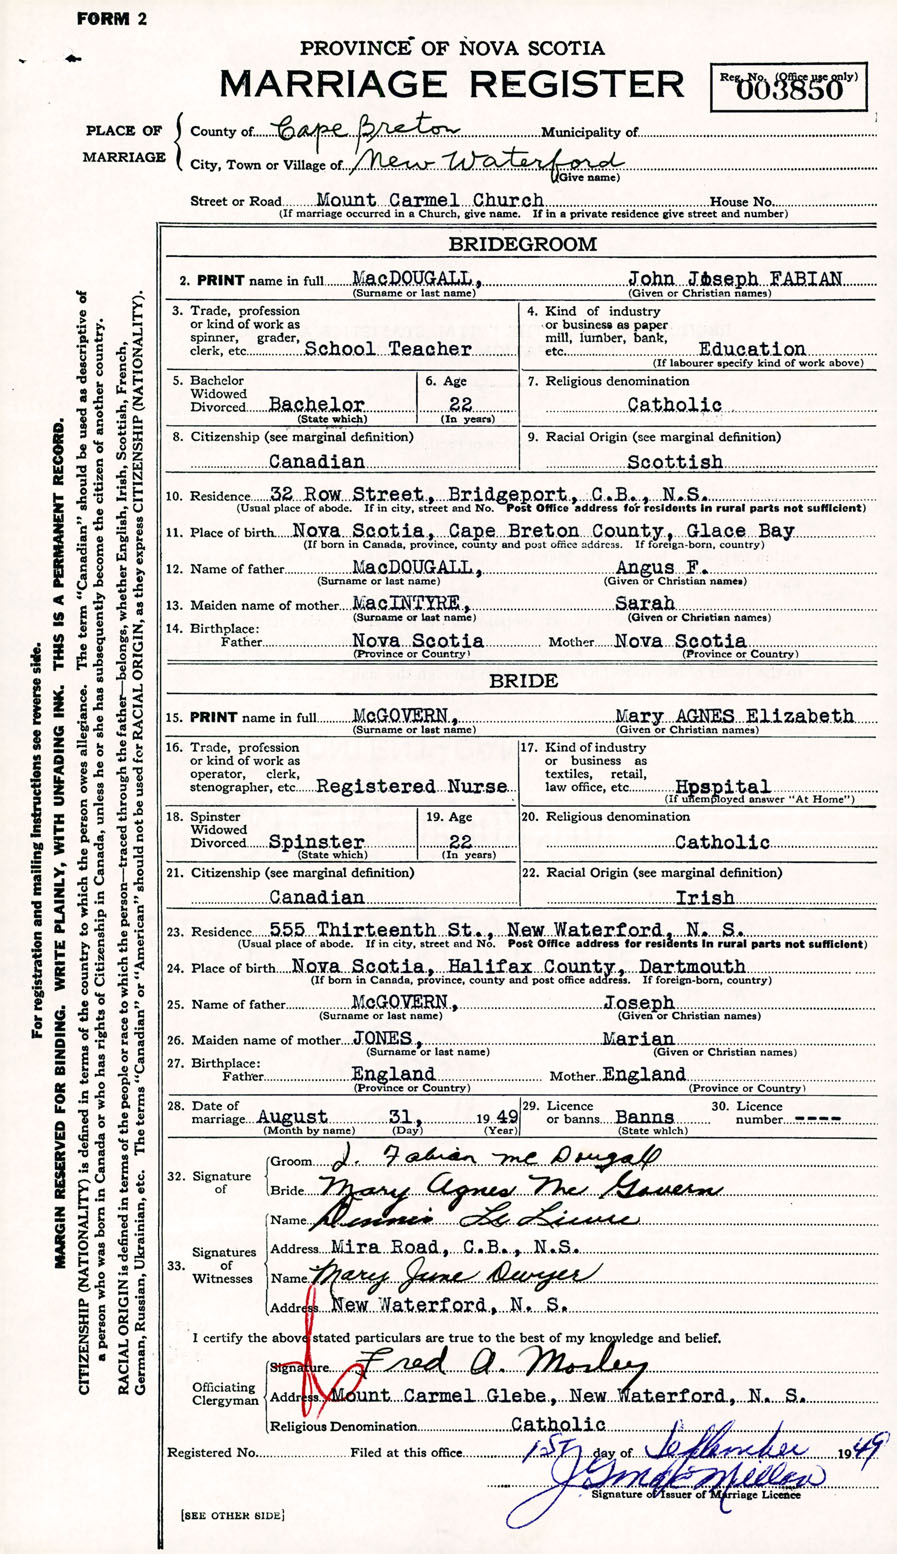 FORM 2
PROVINCE OF NOVA SCOTIA
MARRIAGE REGISTER
Reg. No. (Office use only)
003850
PLACE OF MARRIAGE
County of Cape Breton Municipality of
City, Town or Village of New Waterford
(Give name)
Street or Road Mount Carmel Church House No.
(If marriage occurred in a Church, give name. If in a private residence give street and number)
BRIDEGROOM
2. PRINT name in full MacDOUGALL, John Joseph FABIAN
(Surname or last name) (Given or Christian names)
3. Trade, profession or kind of work as spinner, grader, clerk, etc. School Teacher
4. Kind of industry or business as paper mill, lumber, bank, etc. Education
(If labourer specify kind of work above)
5. Bachelor Widowed Divorced Bachelor
(State which)
6. Age 22
(In years)
7. Religious denomination
Catholic
8. Citizenship (see marginal definition)
Canadian
9. Racial Origin (see marginal definition)
Scottish
10. Residence 32 Row Street, Bridgeport, C.B., N.S.
(Usual place of abode. If in city, street and No. Post Office address for residents in rural parts not sufficient)
11. Place of birth Nova Scotia, Cape Breton County, Glace Bay
(If born in Canada, province, county and post office address. If foreign-born, country)
12. Name of father MacDOUGALL, Angus F.
(Surname or last name) (Given or Christian names)
13. Maiden name of mother MacINTYRE, Sarah
(Surname or last name) (Given or Christian names)
14. Birthplace:
Father Nova Scotia Mother Nova Scotia
(Province or Country) (Province or Country)
BRIDE
15. PRINT name in full McGOVERN, Mary AGNES Elizabeth
(Surname or last name) (Given or Christian names)
16. Trade, profession or kind of work as operator, clerk, stenographer, etc. Registered Nurse
17. Kind of industry or business as textiles, retail, law office, etc. Hpspital
(If unemployed answer "At Home")
18. Spinster Widowed Divorced Spinster
(State which)
19. Age 22
(In years)
20. Religious denomination
Catholic
21. Citizenship (see marginal definition)
Canadian
22. Racial Origin (see marginal definition)
Irish
23. Residence 555 Thirteenth St., New Waterford, N. S.
(Usual place of abode. If in city, street and No. Post Office address for residents in rural parts not sufficient)
24. Place of birth Nova Scotia, Halifax County, Dartmouth
(If born in Canada, province, county and post office address. If foreign-born, country)
25. Name of father McGOVERN, Joseph
(Surname or last name) (Given or Christian names)
26. Maiden name of mother JONES, Marian
(Surname or last name) (Given or Christian names)
27. Birthplace:
Father England Mother England
(Province or Country) (Province or Country)
28. Date of marriage August 31, 1949
(Month by name) (Day) (Year)
29. Licence or banns Banns
(State which)
30. Licence number ----
32. Signature of
Groom J. Fabian McDougall
Bride Mary Agnes McGovern
33. Signatures of Witnesses
Name Dennis
Address Mira Road, C.B., N.S.
Name Mary June Dwyer
Address New Waterford, N. S.
I certify the above stated particulars are true to the best of my knowledge and belief.
Officiating Clergyman
Signature Fred A. Mosley
Address Mount Carmel Glebe, New Waterford, N. S.
Religious Denomination Catholic
Registered No. Filed at this office 1st day of September 1949
Signature of Issuer of Marriage Licence
[SEE OTHER SIDE]
For registration and mailing instructions see reverse side.
MARGIN RESERVED FOR BINDING. WRITE PLAINLY, WITH UNFADING INK. THIS IS A PERMANENT RECORD.
CITIZENSHIP (NATIONALITY) is defined in terms of the country to which the person owes allegiance. The term "Canadian" should be used as descriptive of
a person who was born in Canada or who has rights of Citizenship in Canada, unless he or she has subsequently become the citizen of another country.
RACIAL ORIGIN is defined in terms of the people or race to which the person—traced through the father—belongs, whether English, Irish, Scottish, French,
German, Russian, Ukrainian, etc. The terms "Canadian" or "American" should not be used for RACIAL ORIGIN, as they express CITIZENSHIP (NATIONALITY).